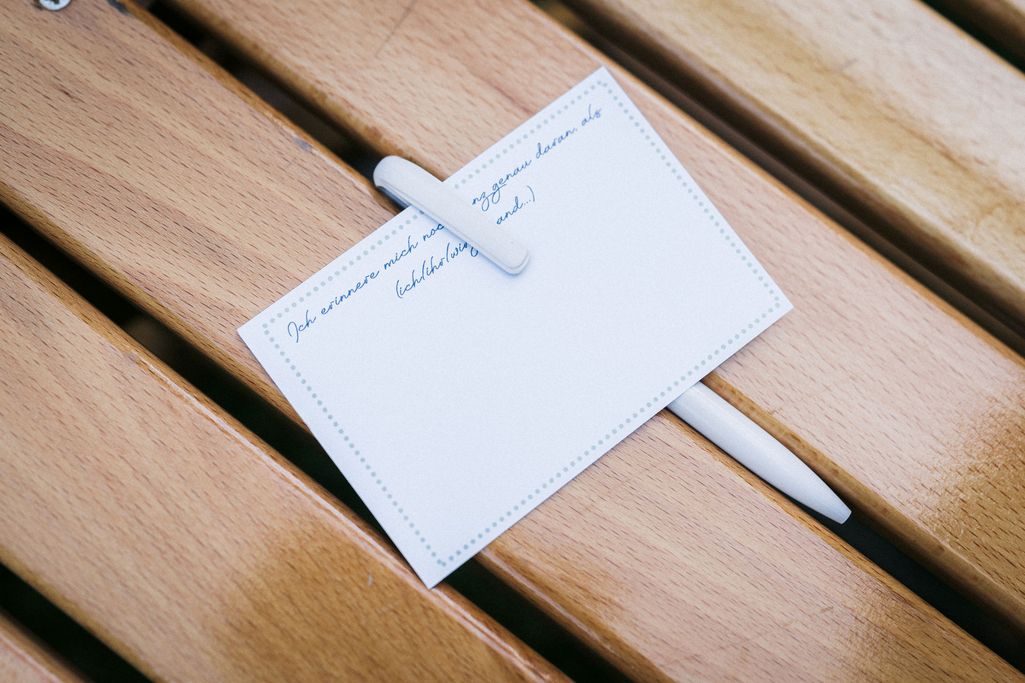 Ich erinnere mich noc nz genau daran, als
(ich/ihr/wir and...)